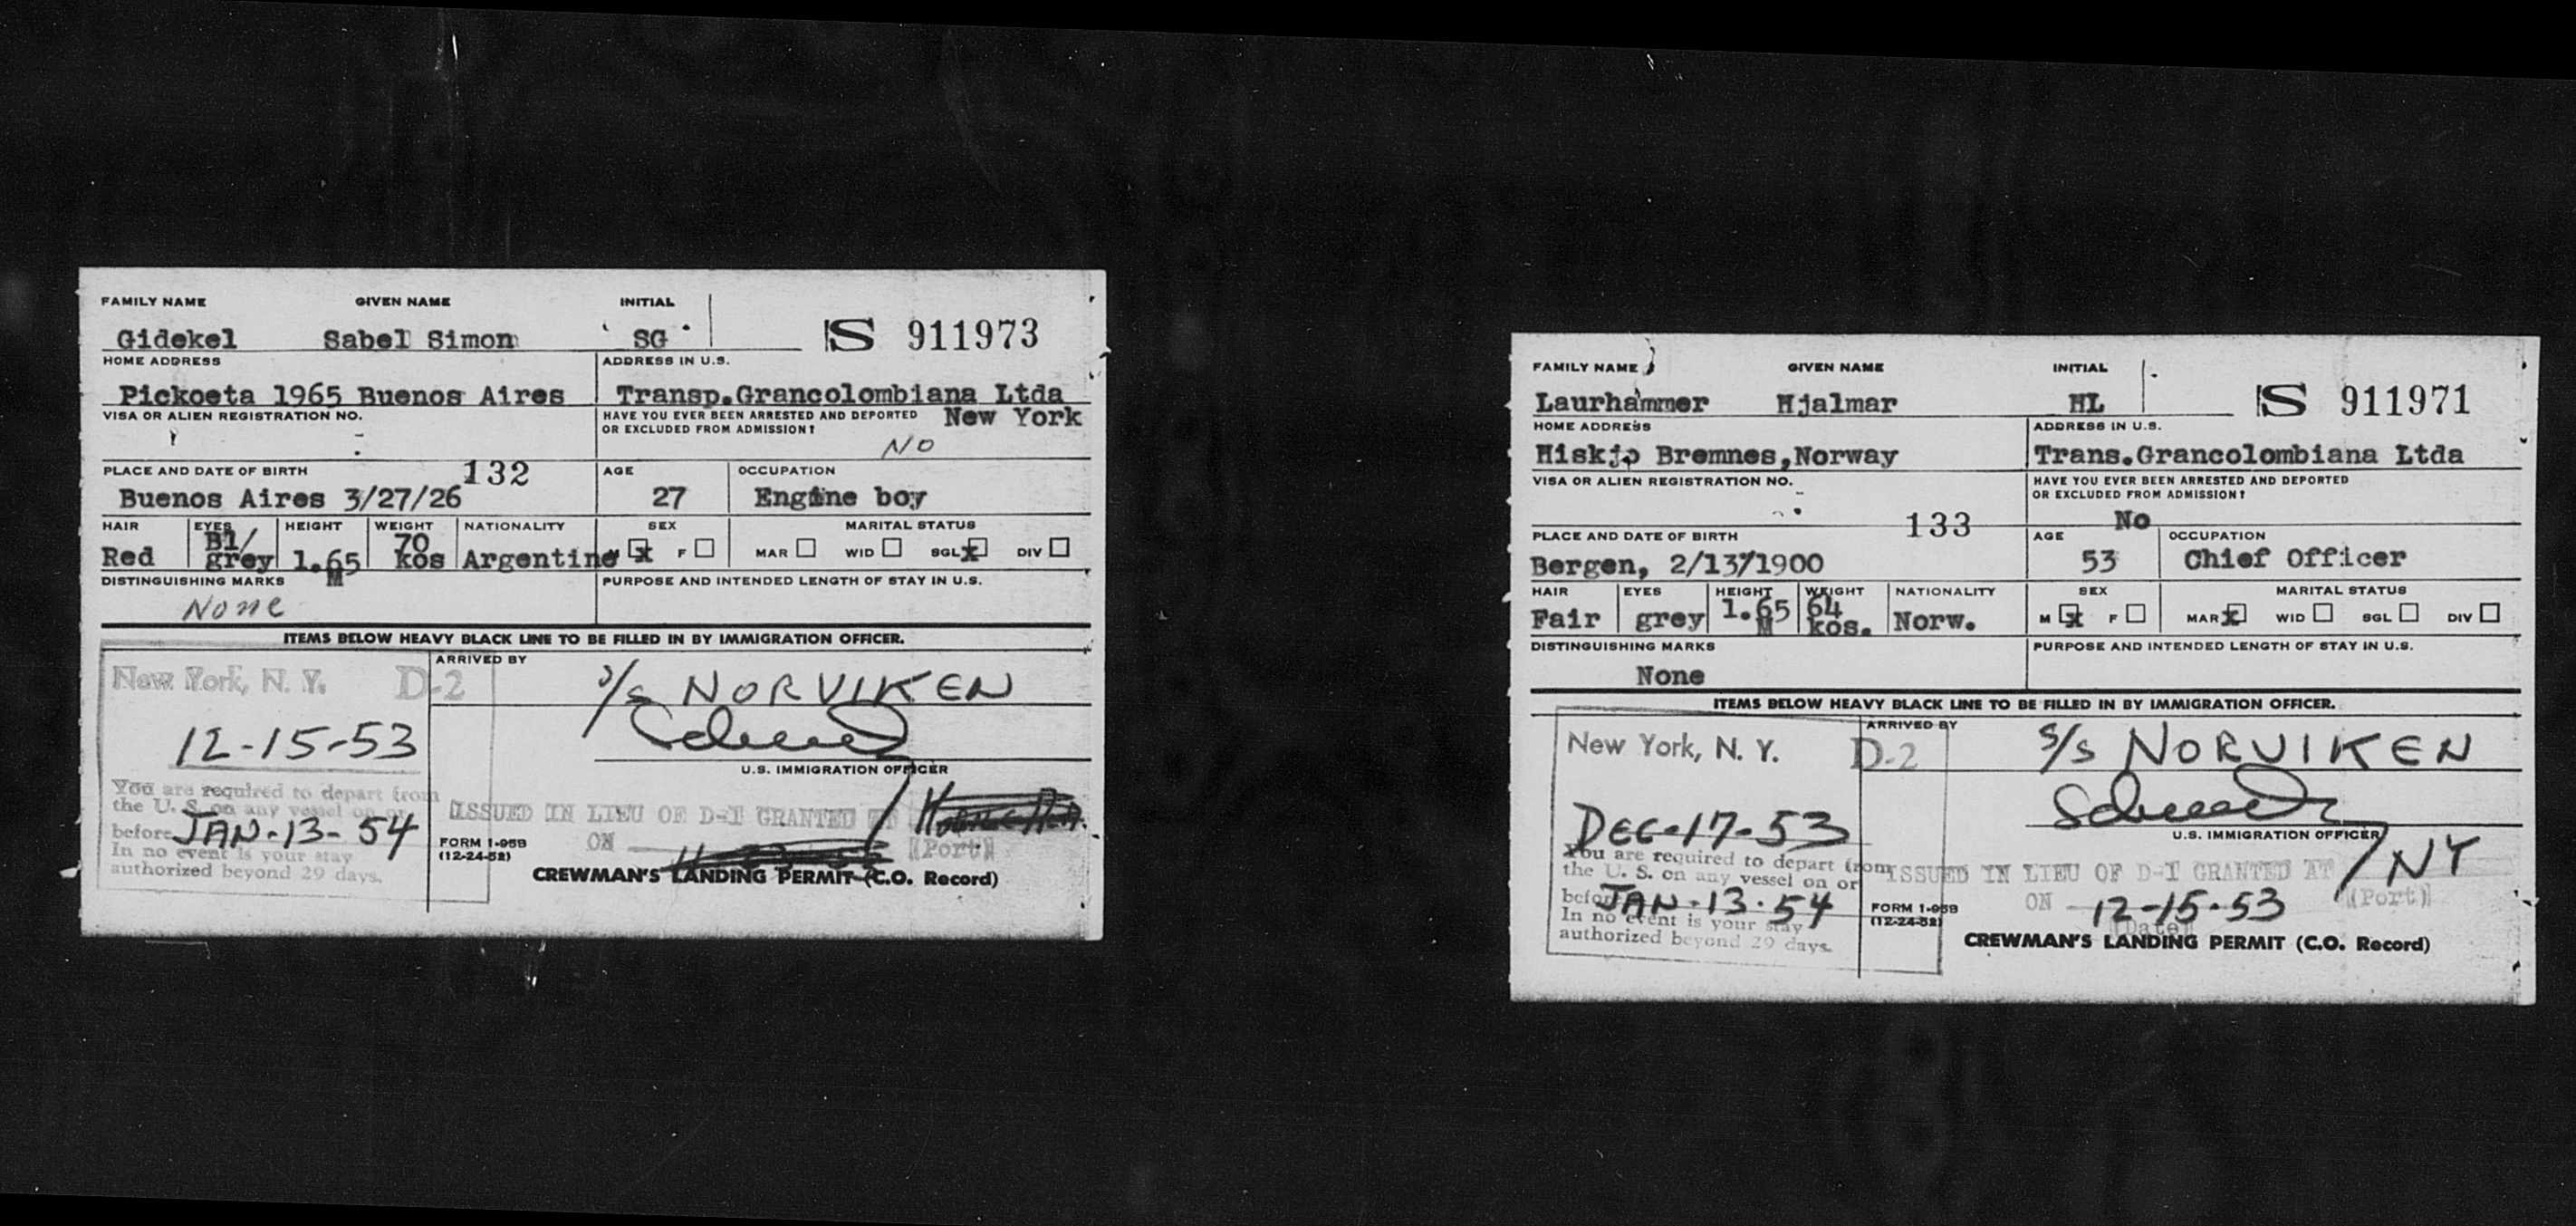 FAMILY NAME GIVEN NAME INITIAL
Gidekel Sabel Simon SG S 911973
HOME ADDRESS ADDRESS IN U.S.
Pickoeta 1965 Buenos Aires Transp.Grancolombiana Ltda
VISA OR ALIEN REGISTRATION NO. HAVE YOU EVER BEEN ARRESTED AND DEPORTED New York
OR EXCLUDED FROM ADMISSION?
NO
PLACE AND DATE OF BIRTH 132 AGE OCCUPATION
Buenos Aires 3/27/26 27 Engine boy
HAIR EYES HEIGHT WEIGHT NATIONALITY SEX MARITAL STATUS
Bl/ 70
Red grey 1.65 kos Argentine M x F MAR WID SGL x DIV
M
DISTINGUISHING MARKS PURPOSE AND INTENDED LENGTH OF STAY IN U.S.
None
ITEMS BELOW HEAVY BLACK LINE TO BE FILLED IN BY IMMIGRATION OFFICER.
ARRIVED BY
New York, N. Y. D-2 S/S NORVIKEN
12-15-53
U.S. IMMIGRATION OFFICER
You are required to depart from
the U. S. on any vessel on or
before JAN-13-54
In no event is your stay
authorized beyond 29 days.
ISSUED IN LIEU OF D-1 GRANTED AT
ON (Port)
FORM I-95B
(12-24-52)
CREWMAN'S LANDING PERMIT (C.O. Record)
FAMILY NAME GIVEN NAME INITIAL
Laurhammer Hjalmar HL S 911971
HOME ADDRESS ADDRESS IN U.S.
Hiskjo Bremnes,Norway Trans.Grancolombiana Ltda
VISA OR ALIEN REGISTRATION NO. HAVE YOU EVER BEEN ARRESTED AND DEPORTED
OR EXCLUDED FROM ADMISSION?
133 No
PLACE AND DATE OF BIRTH AGE OCCUPATION
Bergen, 2/13/1900 53 Chief Officer
HAIR EYES HEIGHT WEIGHT NATIONALITY SEX MARITAL STATUS
Fair grey 1.65 64 Norw. M x F MAR x WID SGL DIV
M kos.
DISTINGUISHING MARKS PURPOSE AND INTENDED LENGTH OF STAY IN U.S.
None
ITEMS BELOW HEAVY BLACK LINE TO BE FILLED IN BY IMMIGRATION OFFICER.
ARRIVED BY
New York, N. Y. D-2 S/S NORVIKEN
DEC-17-53
U.S. IMMIGRATION OFFICER
You are required to depart from
the U. S. on any vessel on or
before JAN-13-54
In no event is your stay
authorized beyond 29 days.
ISSUED IN LIEU OF D-1 GRANTED AT NY
(Port)
ON 12-15-53
(Date)
FORM I-95B
(12-24-52)
CREWMAN'S LANDING PERMIT (C.O. Record)